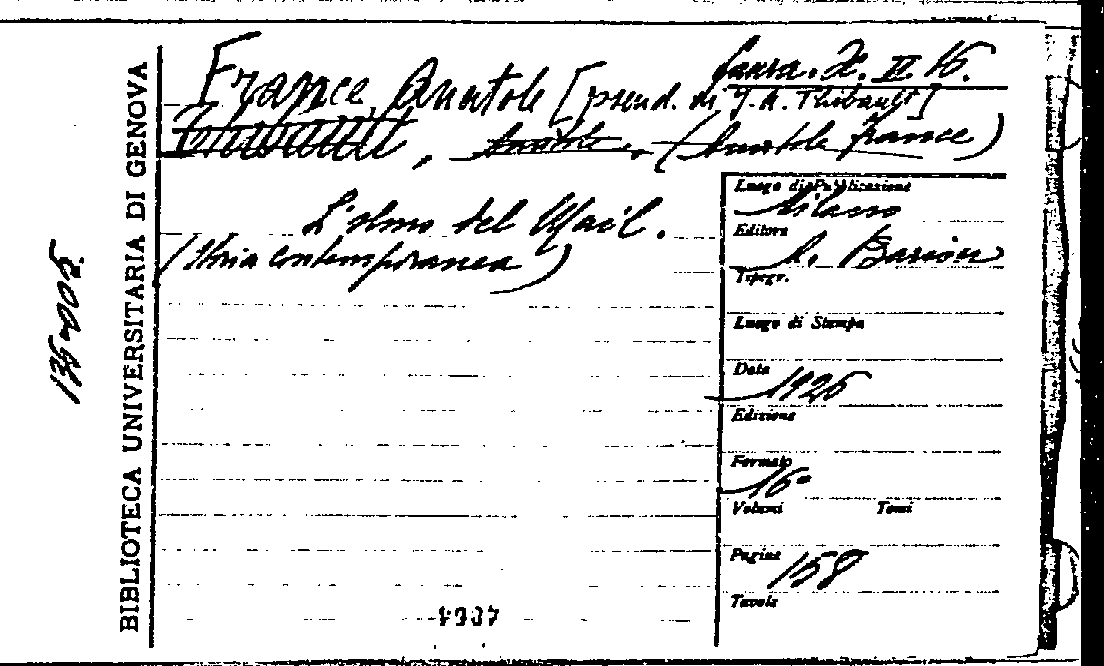 BIBLIOTECA UNIVERSITARIA DI GENOVA
X. II 16.
France, Anatole [pseud. di J. A. Thibault]
Thibault, Anatole, (Anatole France)
L'olmo del Mail.
(Storia contemporanea)
Luogo di Pubblicazione
Milano
Editore
A. Barion
Tipogr.
Luogo di Stampa
Data
1926
Edizione
Formato
16°
Volumi Tomi
Pagine
158
Tavole